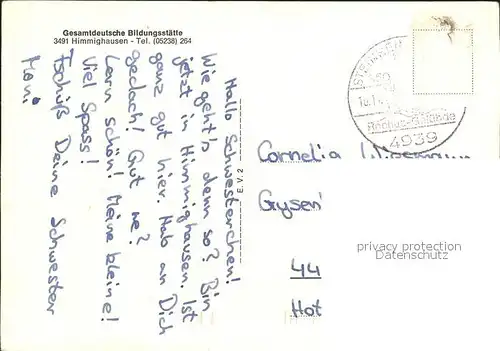 Gesamtdeutsche Bildungsstätte
3491 Himmighausen - Tel. (05238) 264
Hallo Schwesterchen!
Wie geht's denn so? Bin
jetzt in Himmighausen. Ist
ganz gut hier. Hab an Dich
gedach! Gut ne?
Lern schön! Meine kleine!
Viel Spass!
Tschüß Deine Schwester
Moni
E. V. 2
4939
Cornelia
44
Hot
privacy protection
Datenschutz